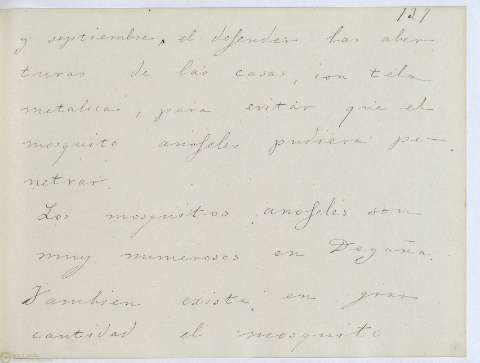 137
y septiembre, el defender las aber
turas de las casas, con tela
metalica, para evitar que el
mosquito anofeles pudiera pe-
netrar.
Los mosquitos anofeles son
muy numerosos en Dogaña.
Tambien existe en gran
cantidad el mosquito